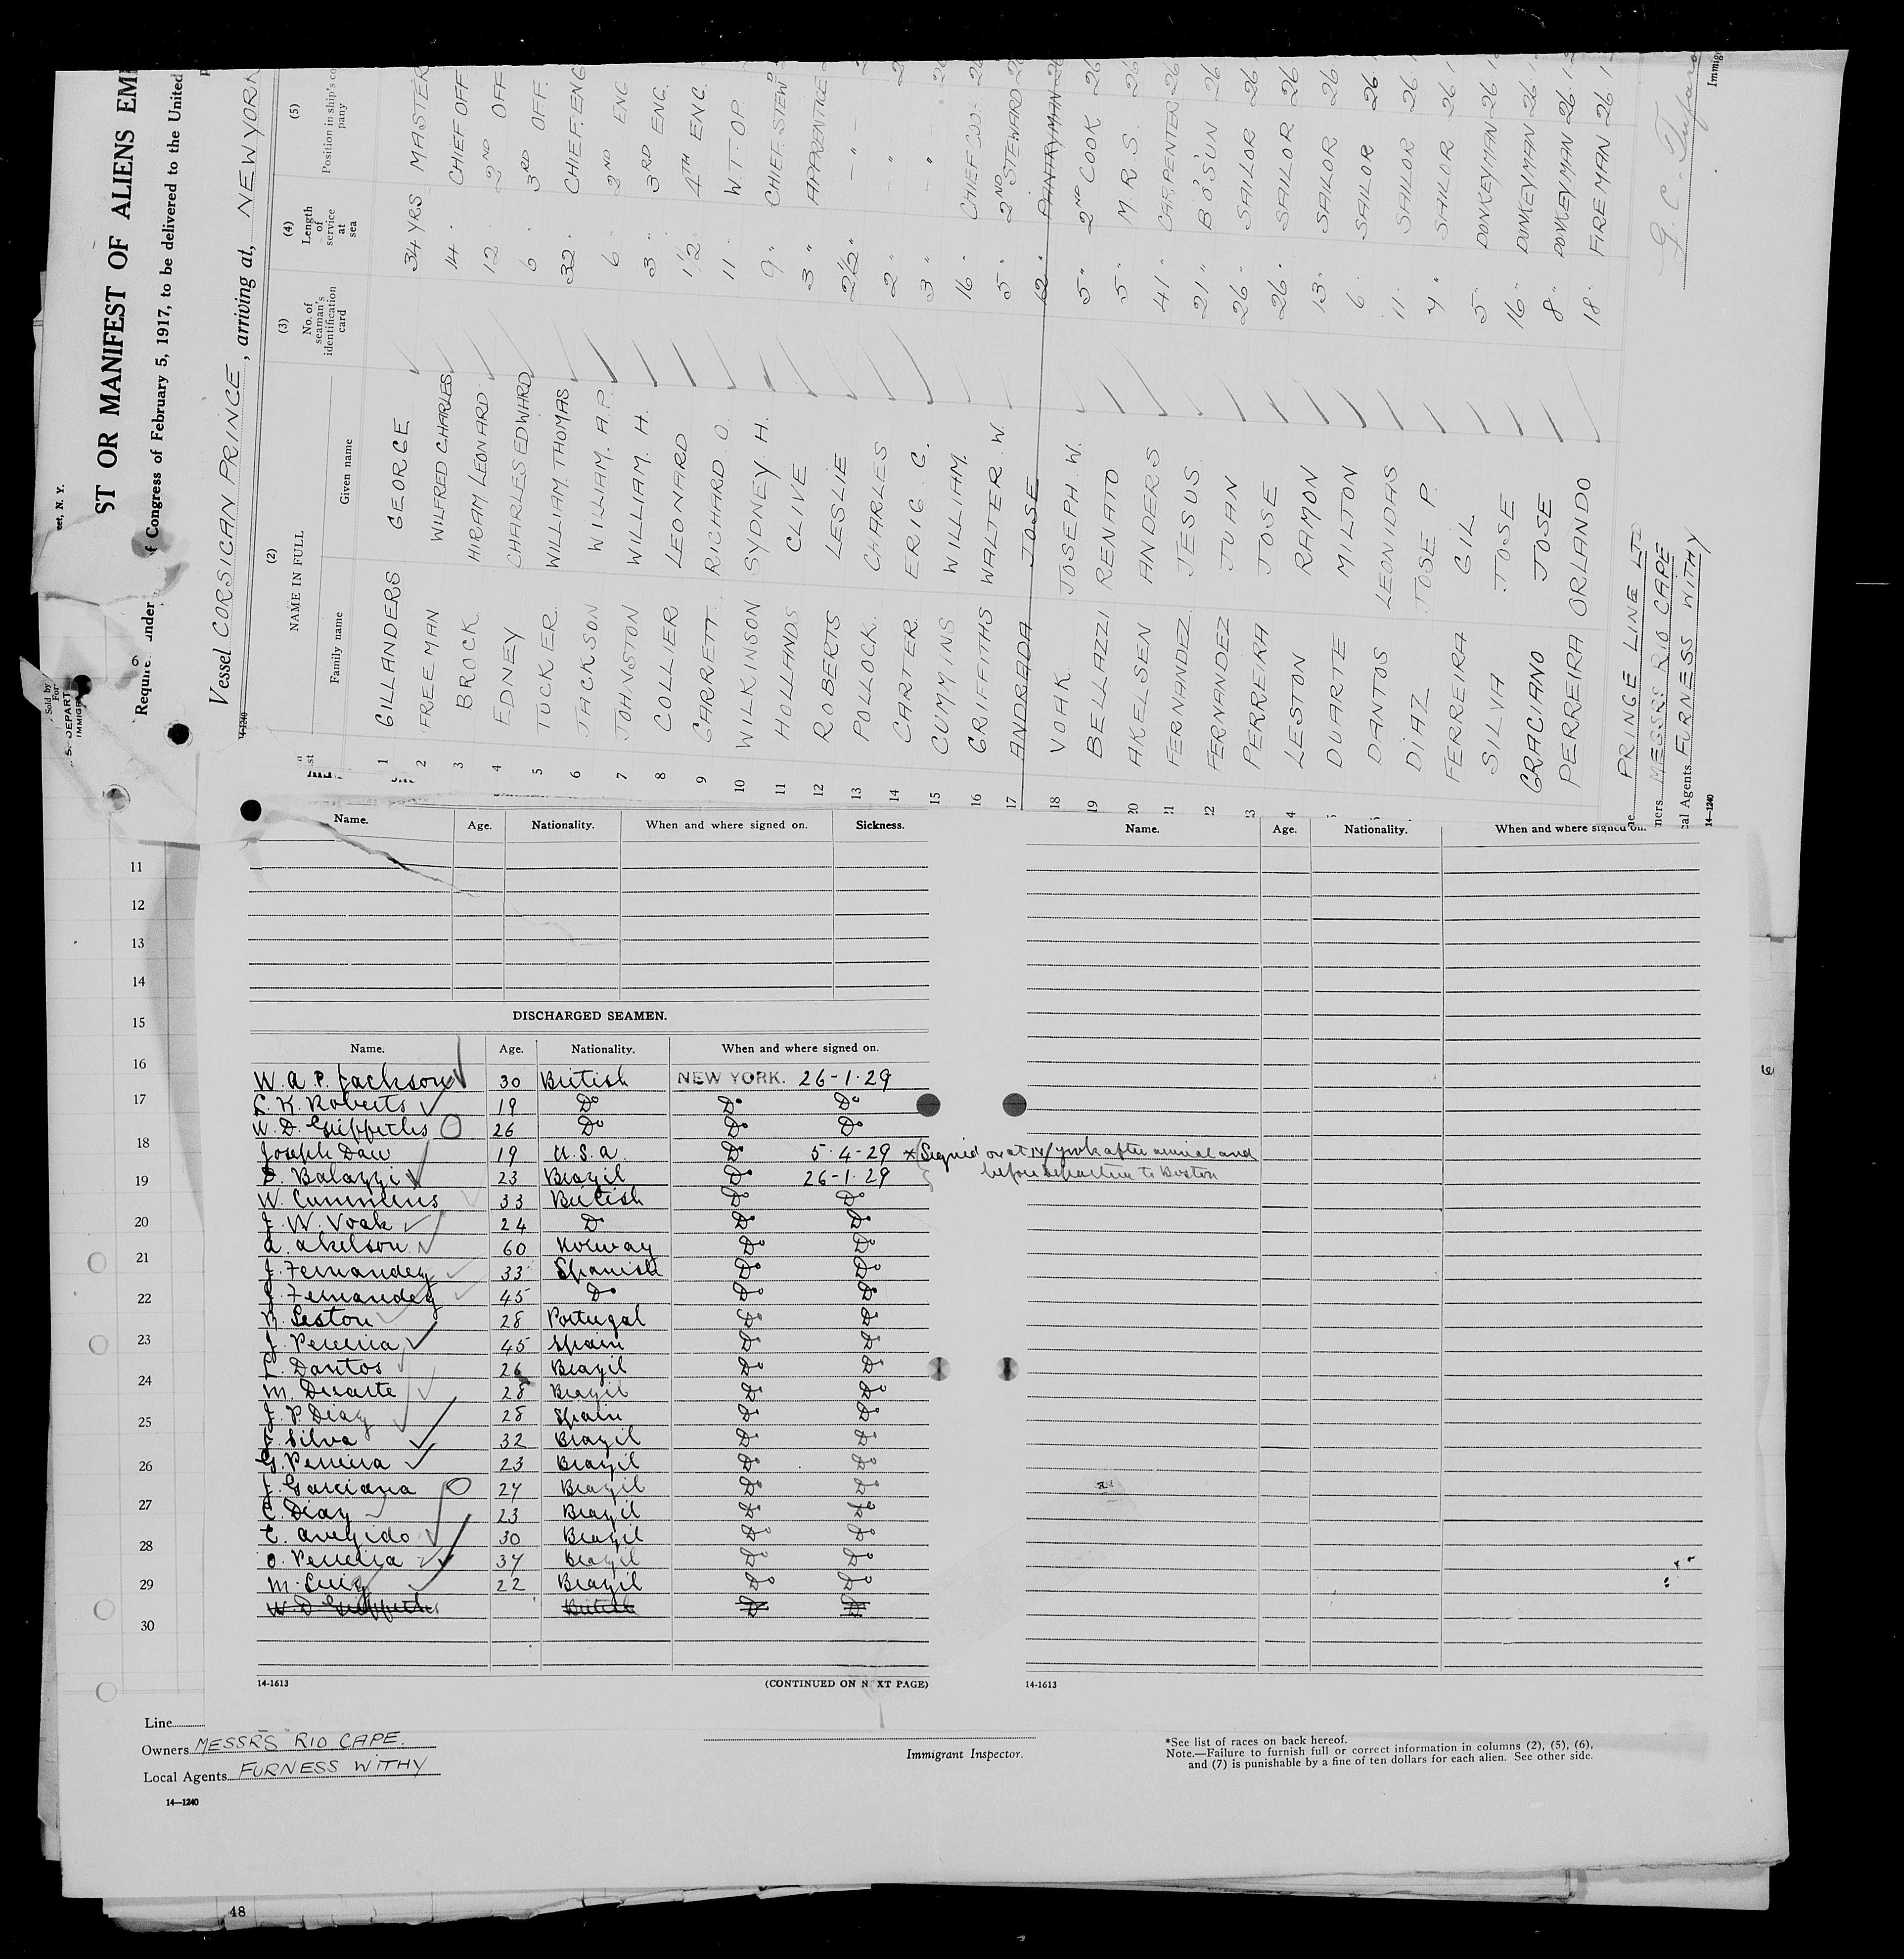 ST OR MANIFEST OF ALIENS EM
f Congress of February 5, 1917, to be delivered to the United
Vessel CORSICAN PRINCE, arriving at, NEW YORK
(2) (3) (4) (5)
NAME IN FULL No. of seaman's identification card Length of service at sea Position in ship's com pany
Family name Given name
1 GILLANDERS GEORGE 34 YRS MASTER
2 FREEMAN WILFRED CHARLES 14 " CHIEF OFF
3 BROCK HIRAM LEONARD 12 " 2ND OFF
4 EDNEY CHARLES EDWARD 6 " 3RD OFF.
5 TUCKER WILLIAM THOMAS 32 " CHIEF. ENG
6 JACKSON WILLIAM. A. P. 6 " 2ND ENG
7 JOHNSTON WILLIAM. H. 3 " 3RD ENG.
8 COLLIER LEONARD 1½ " 4TH ENG.
9 GARRETT RICHARD O. 11 " W.T. OP.
10 WILKINSON SYDNEY. H. 9 " CHIEF. STEW
11 HOLLANDS CLIVE 3 " APPRENTICE
12 ROBERTS LESLIE 2½ " - " -
13 POLLOCK. CHARLES 2 " - " -
14 CARTER. ERIC C. 3 " - " -
15 CUMMINS WILLIAM. 16 " CHIEF COOK 26
16 GRIFFITHS WALTER. W. 5 " 2ND STEWARD 26
17 ANDRADA JOSE 12 " PANTRYMAN 26
18 VOAK JOSEPH. W. 5 " 2ND COOK 26
19 BELLAZZI RENATO 5 " M. R. S. 26
20 AKELSEN ANDERS 41 " CARPENTER 26
21 FERNANDEZ JESUS 21 " BO'SUN 26
22 FERNANDEZ JUAN 26 " SAILOR 26
23 PERREIRA JOSE 26 " SAILOR 26
4 LESTON RAMON 13 " SAILOR 26
DUARTE MILTON 6 " SAILOR 26
DANTOS LEONIDAS 11 " SAILOR 26
DIAZ JOSE P. 4 " SAILOR 26
FERREIRA GIL 5 " DONKEYMAN 26
SILVA JOSE 16 " DONKEYMAN 26
GRACIANO JOSE 8 " DONKEYMAN 26
PERREIRA ORLANDO 18 " FIREMAN 26
PRINCE LINE LTD
MESSRS RIO CAPE
cal Agents FURNESS WITHY
14-1240
Name. Age. Nationality. When and where signed on. Sickness.
Name. Age. Nationality. When and where signed on.
11
12
13
14
15
16
17
18
19
20
21
22
23
24
25
26
27
28
29
30
DISCHARGED SEAMEN.
Name. Age. Nationality. When and where signed on.
W. A. P. Jackson 30 British NEW YORK. 26-1-29
L. K. Roberts 19 Do Do Do
W. D. Griffiths 26 Do Do Do
Joseph Daw 19 U.S.A Do 5-4-29 * Signed on at N/York after arrival and
before departure to Boston
Balazzi 23 Brazil Do 26-1-29
W. Cummins 33 British Do Do
J. W. Voak 24 Do Do Do
A. Akelson 60 Norway Do Do
J. Fernandez 33 Spanish Do Do
J. Fernandez 45 Do Do Do
R. Leston 28 Portugal Do Do
J. Pereira 45 Spain Do Do
L. Dantos 26 Brazil Do Do
M. Duarte 28 Brazil Do Do
J. P. Diaz 28 Spain Do Do
J. Silva 32 Brazil Do Do
G. Pereira 23 Brazil Do Do
J. Garciana 27 Brazil Do Do
C. Diaz 23 Brazil Do Do
30 Brazil Do Do
O. Perreira 37 Brazil Do Do
M. Luiz 22 Brazil Do Do
W. D. Griffiths British Do Do
14-1613 (CONTINUED ON NEXT PAGE) 14-1613
Line
Owners MESSRS RIO CAPE.
Local Agents FURNESS WITHY
14-1240
Immigrant Inspector.
*See list of races on back hereof.
Note.—Failure to furnish full or correct information in columns (2), (5), (6),
and (7) is punishable by a fine of ten dollars for each alien. See other side.
48